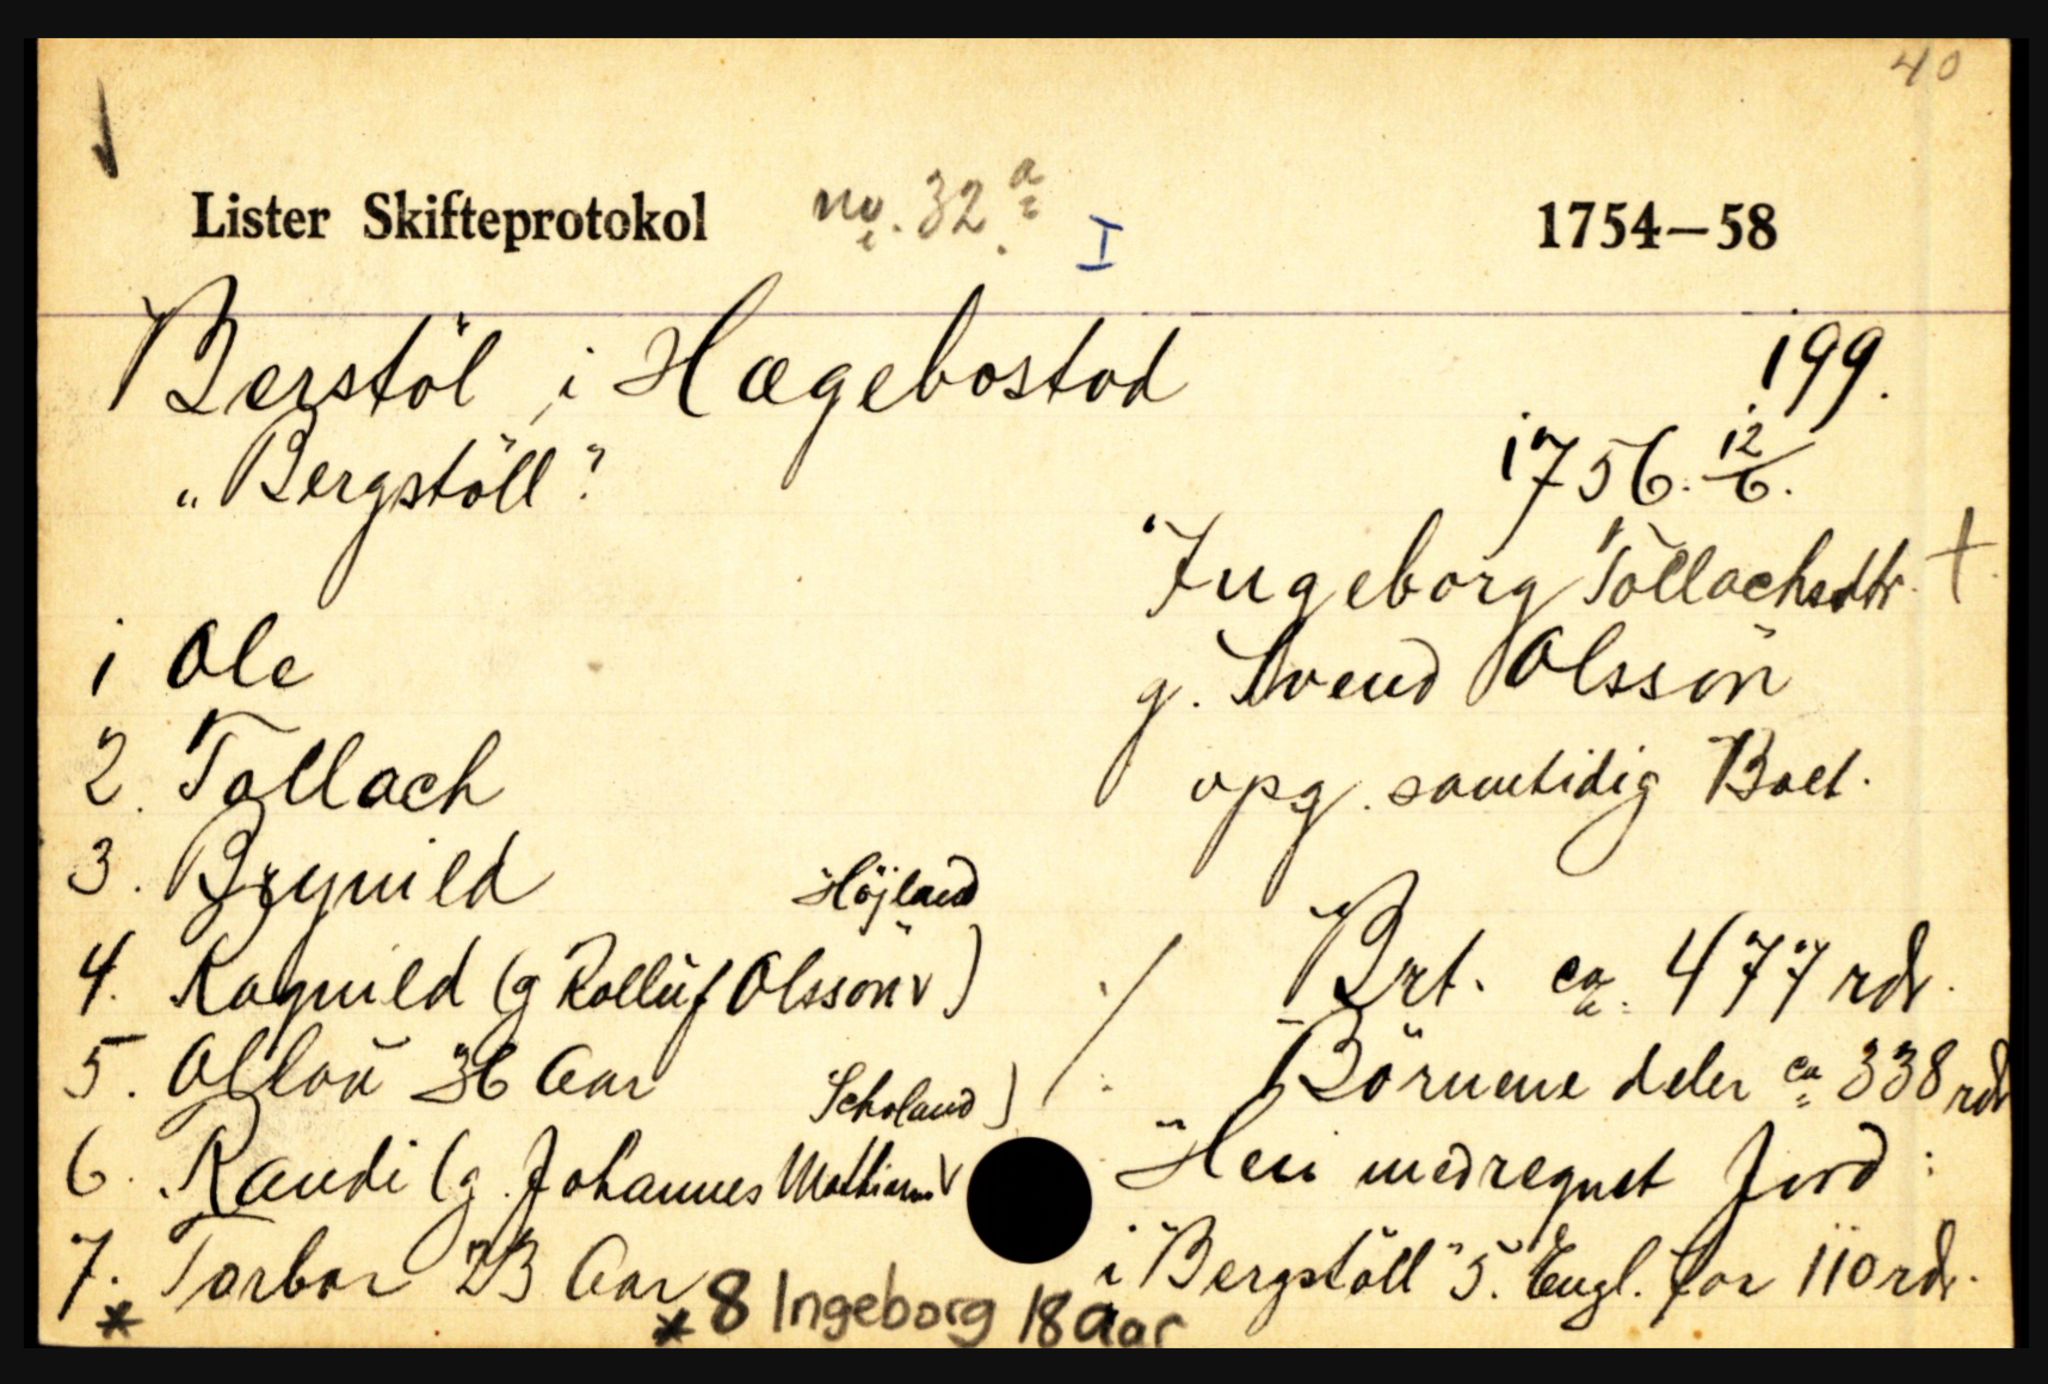 40
Lister Skifteprotokol no. 32 a I 1754—58
Berstöl i Hægebostad 199.
„Bergstöll" 1756. 12/6.
Ingeborg Tollachsdtr. +
1 Ole
g. Svend Olssön
2. Tollach
opg. samtidig Boet.
3. Brynild
Höjland
4. Ragnild (g Rolluf Olssön v )
Brt. ca. 477 rdr.
5. Ollou 36 Aar
Börnene deler ca 338 rdr
Scholand )
6. Randi (g. Johannes Mathiasen v
Heri medregnet Jord :
7. Torbor 23 Aar
i "Bergstöll" 5. Engl. for 110 rdr.
* * 8 Ingeborg 18 Aar